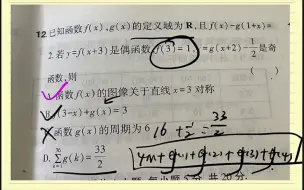 12 已知函数 f(x),g(x)的定义域为 R,且 f(x)-g(1+x)=
2. 若 y=f(x+3)是偶函数, f(3)=1, y=g(x+2)-1/2是奇
函数,则 ( )
A. 函数 f(x)的图像关于直线 x=3 对称
B. f(3-x)+g(x)=3
C. 函数 g(x)的周期为 6
16 + 1/2 = 33/2
D. ∑_{k=1}^{36} g(k)=33/2
4m+g(1)+g(2)+g(3)+g(4)